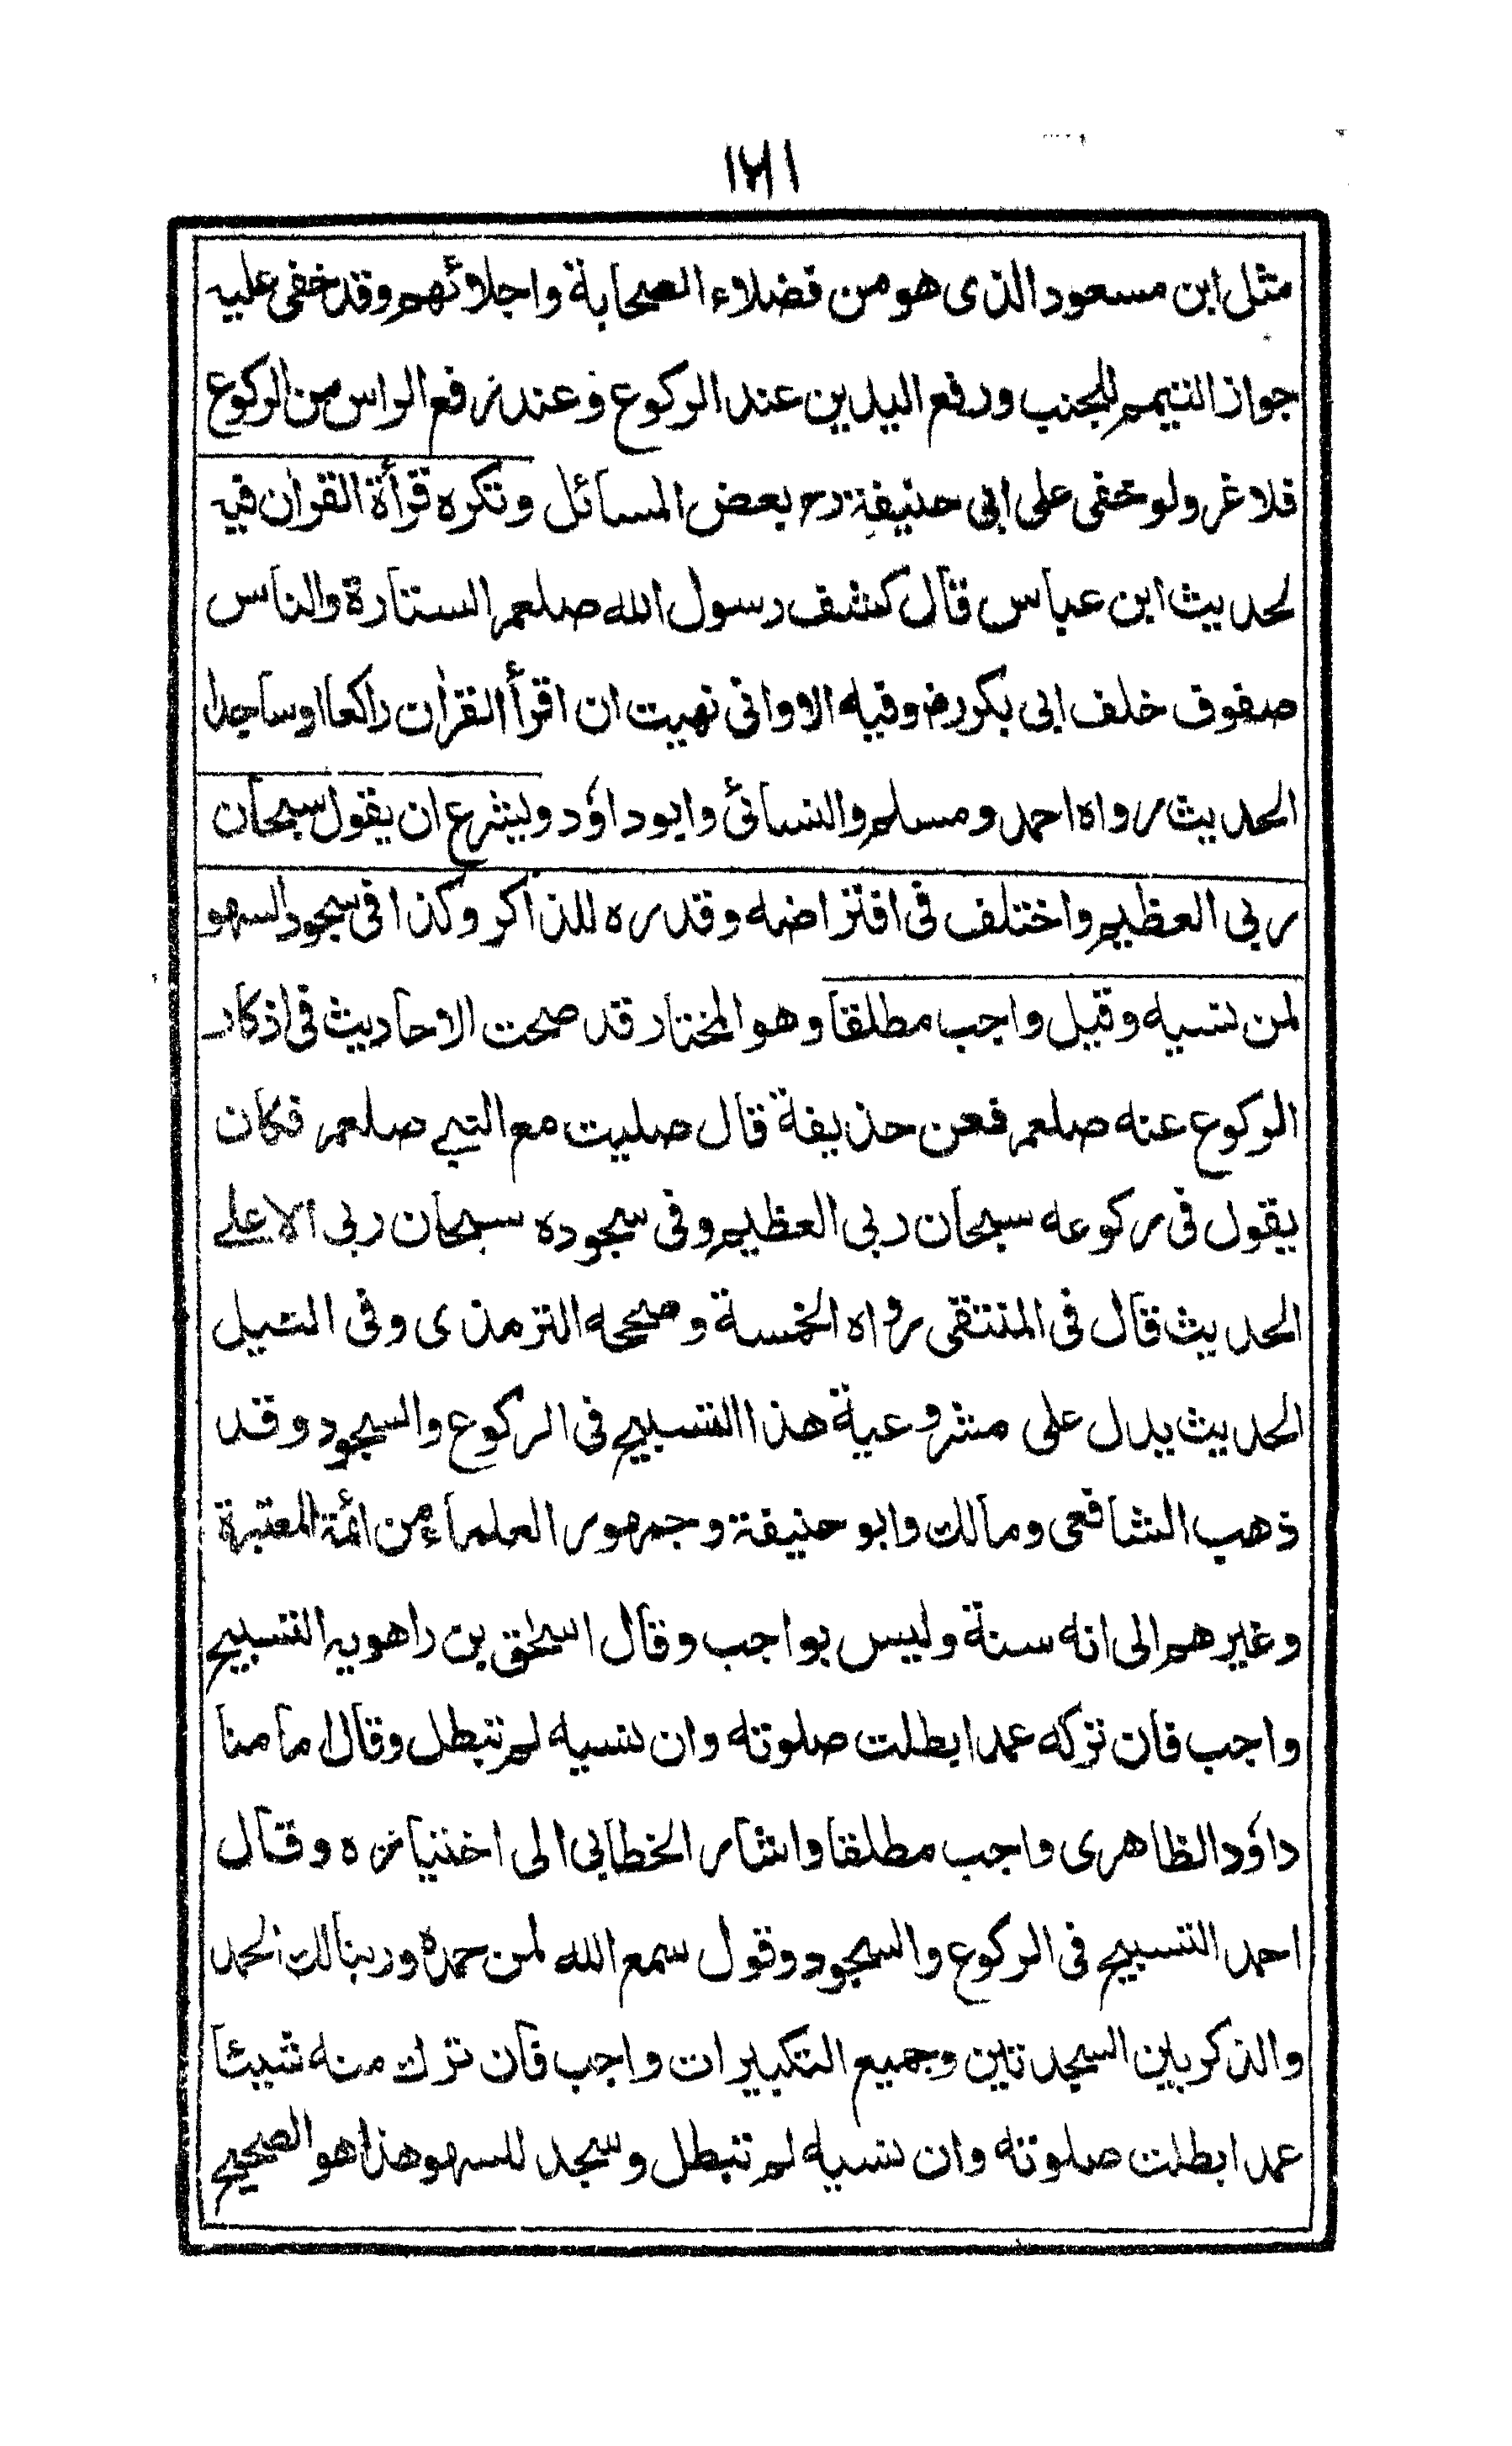 ١٢١
مثل ابن مسعود الذی هو من فضلاء الصحابة واجلائهم وقد خفی علیه
جواز التیمم للجنب ورفع الیدین عند الرکوع وعند رفع الراس من الرکوع
فلا غرو لو خفی علی ابی حنیفة رح بعض المسائل وتکره قرأة القران فیه
لحدیث ابن عباس قال کشف رسول الله صلعم الستارة والناس
صفوف خلف ابی بکر رض وفیه الا وانی نهیت ان اقرأ القران راکعا او ساجدا
الحدیث رواه احمد ومسلم والنسائی وابو داؤد ویشرع ان یقول سبحان
ربی العظیم واختلف فی افتراضه وقدره للذاکر وکذا فی سجود السهو
لمن نسیه وقیل واجب مطلقا وهو المختار قد صحت الاحادیث فی اذکار
الرکوع عنه صلعم فعن حذیفة قال صلیت مع النبی صلعم فکان
یقول فی رکوعه سبحان ربی العظیم وفی سجوده سبحان ربی الاعلے
الحدیث قال فی المنتقی رواه الخمسة وصححه الترمذی وفی النیل
الحدیث یدل علی مشروعیة هذا التسبیح فی الرکوع والسجود وقد
ذهب الشافعی ومالک وابو حنیفة وجمهور العلماء من ائمة المعتبرة
وغیرهم الی انه سنة ولیس بواجب وقال اسحٰق بن راهویه التسبیح
واجب فان ترکه عمدا بطلت صلوته وان نسیه لم تبطل وقال امامنا
داؤد الظاهری واجب مطلقا واشار الخطابی الی اختیاره وقال
احمد التسبیح فی الرکوع والسجود وقول سمع الله لمن حمده وربنا لک الحمد
والذکر بین السجدتین وجمیع التکبیرات واجب فان ترک منه شیئا
عمدا بطلت صلوته وان نسیه لم تبطل وسجد للسهو هذا هو الصحیح